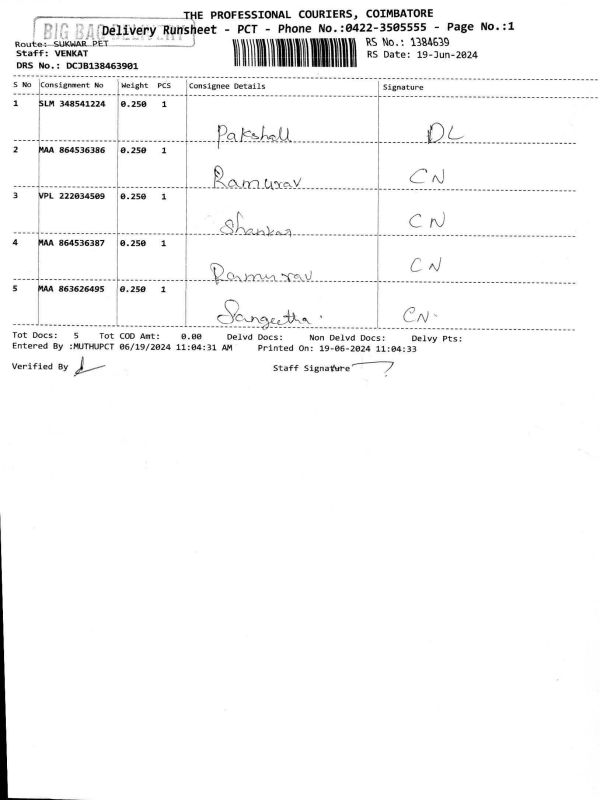 THE PROFESSIONAL COURIERS, COIMBATORE
BIG BAG DELIVERY
Delivery Runsheet - PCT - Phone No.:0422-3505555 - Page No.:1
Route: SUKWAR PET
Staff: VENKAT
DRS No.: DCJB138463901
RS No.: 1384639
RS Date: 19-Jun-2024
S No Consignment No Weight PCS Consignee Details Signature
1 SLM 348541224 0.250 1
Pakshall DL
2 MAA 864536386 0.250 1
Ramurav CN
3 VPL 222034509 0.250 1
Shankar CN
4 MAA 864536387 0.250 1
Ramurav CN
5 MAA 863626495 0.250 1
Sangeetha. CN.
Tot Docs: 5 Tot COD Amt: 0.00 Delvd Docs: Non Delvd Docs: Delvy Pts:
Entered By :MUTHUPCT 06/19/2024 11:04:31 AM Printed On: 19-06-2024 11:04:33
Verified By Staff Signature